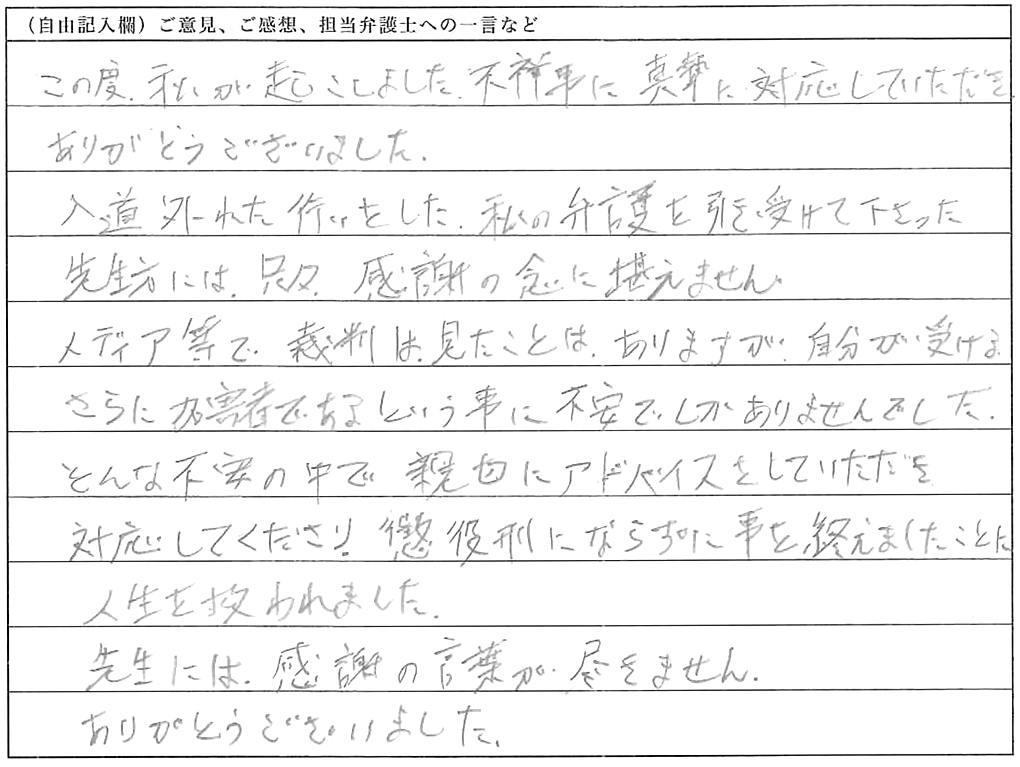 （自由記入欄）ご意見、ご感想、担当弁護士への一言など
この度、私が起こしました、不祥事に真摯に対応していただき
ありがとうございました。
人道外れた行いをした、私の弁護を引き受けて下さった
先生方には、只々、感謝の念に堪えません。
メディア等で、裁判は見たことは、ありますが、自分が受ける
さらに加害者であるという事に不安でしかありませんでした。
そんな不安の中で親切にアドバイスをしていただき
対応してくださり、懲役刑にならずに事を終えましたことに
人生を救われました。
先生には、感謝の言葉が尽きません。
ありがとうございました。